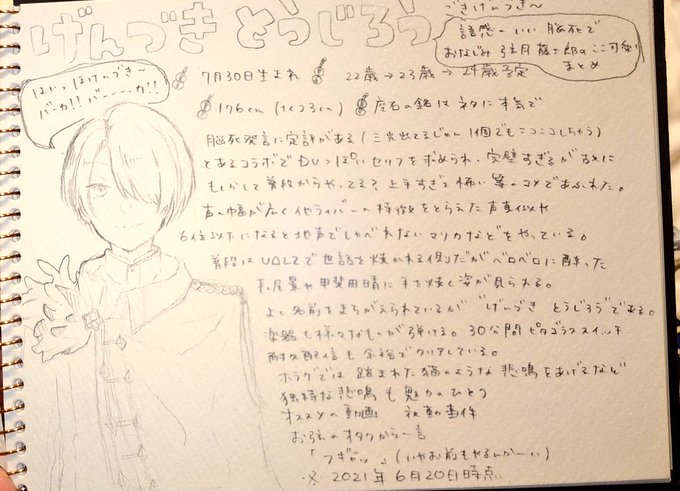 げんづき とうじろう
づきけんづき〜
語感のいい脳死で
おなじみ 弦月藤士郎のここ可愛い
まとめ
はいっほけのづき〜
バーカ!! バーーーカ!!
7月30日生まれ 22歳→23歳→24歳予定
176cm 座右の銘はネタに本気で
脳死発言に定評がある(三丸出てるじゃん1個でもニコニコしちゃう)
とあるコラボでDVっぽいセリフを求められ、完璧すぎるがゆえに
もしかして普段からやってる? 上手すぎて怖い等のコメであふれた。
声の幅が広く他ライバーの特徴をとらえた声真似や
6位以下になると地声でしゃべれないマリカなどをやっている。
普段はVΔLZで世話を焼かれる側だがベロベロに酔った
長尾景や甲斐田晴に手を焼く姿が見られる。
よく名前をまちがえられているが"げんづき とうじろう"である。
楽器も様々なものが弾ける。30分間ピタゴラスイッチ
耐久配信も余裕でクリアしている。
ホラゲでは踏まれた猫のような悲鳴をあげるなど
独特な悲鳴も魅力のひとつ
オススメの動画 初動事件
お弦のオタクから一言
「フギャッ」(いやお前もやるんかーい)
※2021年6月20日時点